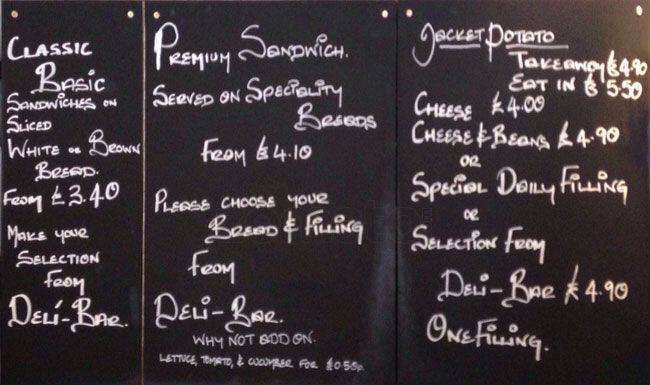 Classic
Basic
Sandwiches on
Sliced
White or Brown
Bread.
From £3.40
Make your
Selection
From
Deli-Bar.
Premium Sandwich.
Served on Speciality
Breads
From £4.10
Please choose your
Bread & Filling
From
Deli-Bar.
Why not add on.
Lettuce, Tomato, & Cucumber for £0.55p.
Jacket Potato
Takeaway £4.90
Eat in £5.50
Cheese £4.00
Cheese & Beans £4.90
or
Special Daily Filling
or
Selection From
Deli-Bar £4.90
One Filling.